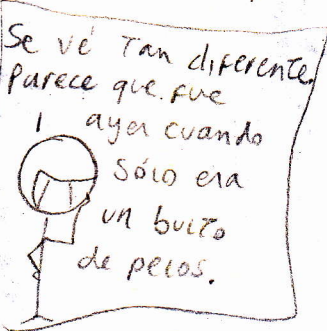 Se vé Tan diferente.
Parece que fue
ayer cuando
sólo era
un bulto
de pelos.